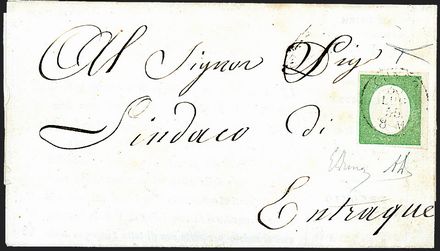 Al Signor Sig
Sindaco di
Entraque
LUG